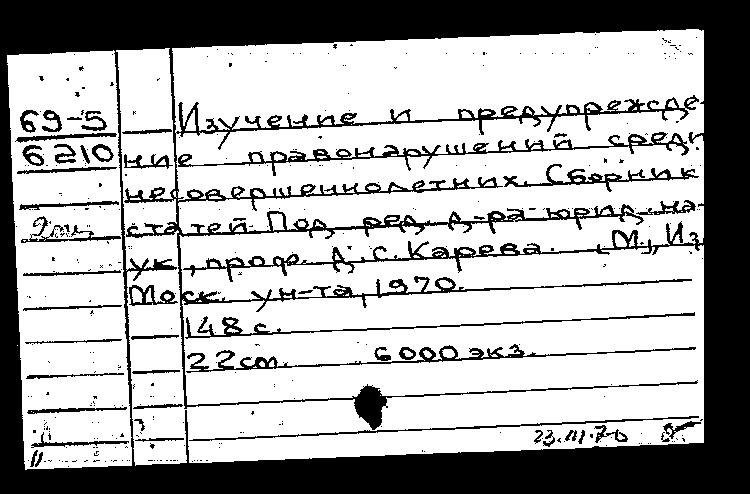 69-5 Изучение и предупрежде-
6210 ние правонарушений среди
несовершеннолетних. Сборник
статей. Под ред. д-ра юрид. на-
ук, проф. Д. С. Карева. [М.], Из
Моск. ун-та, 1970.
148 с.
22 см. 6000 экз.
23.III.70